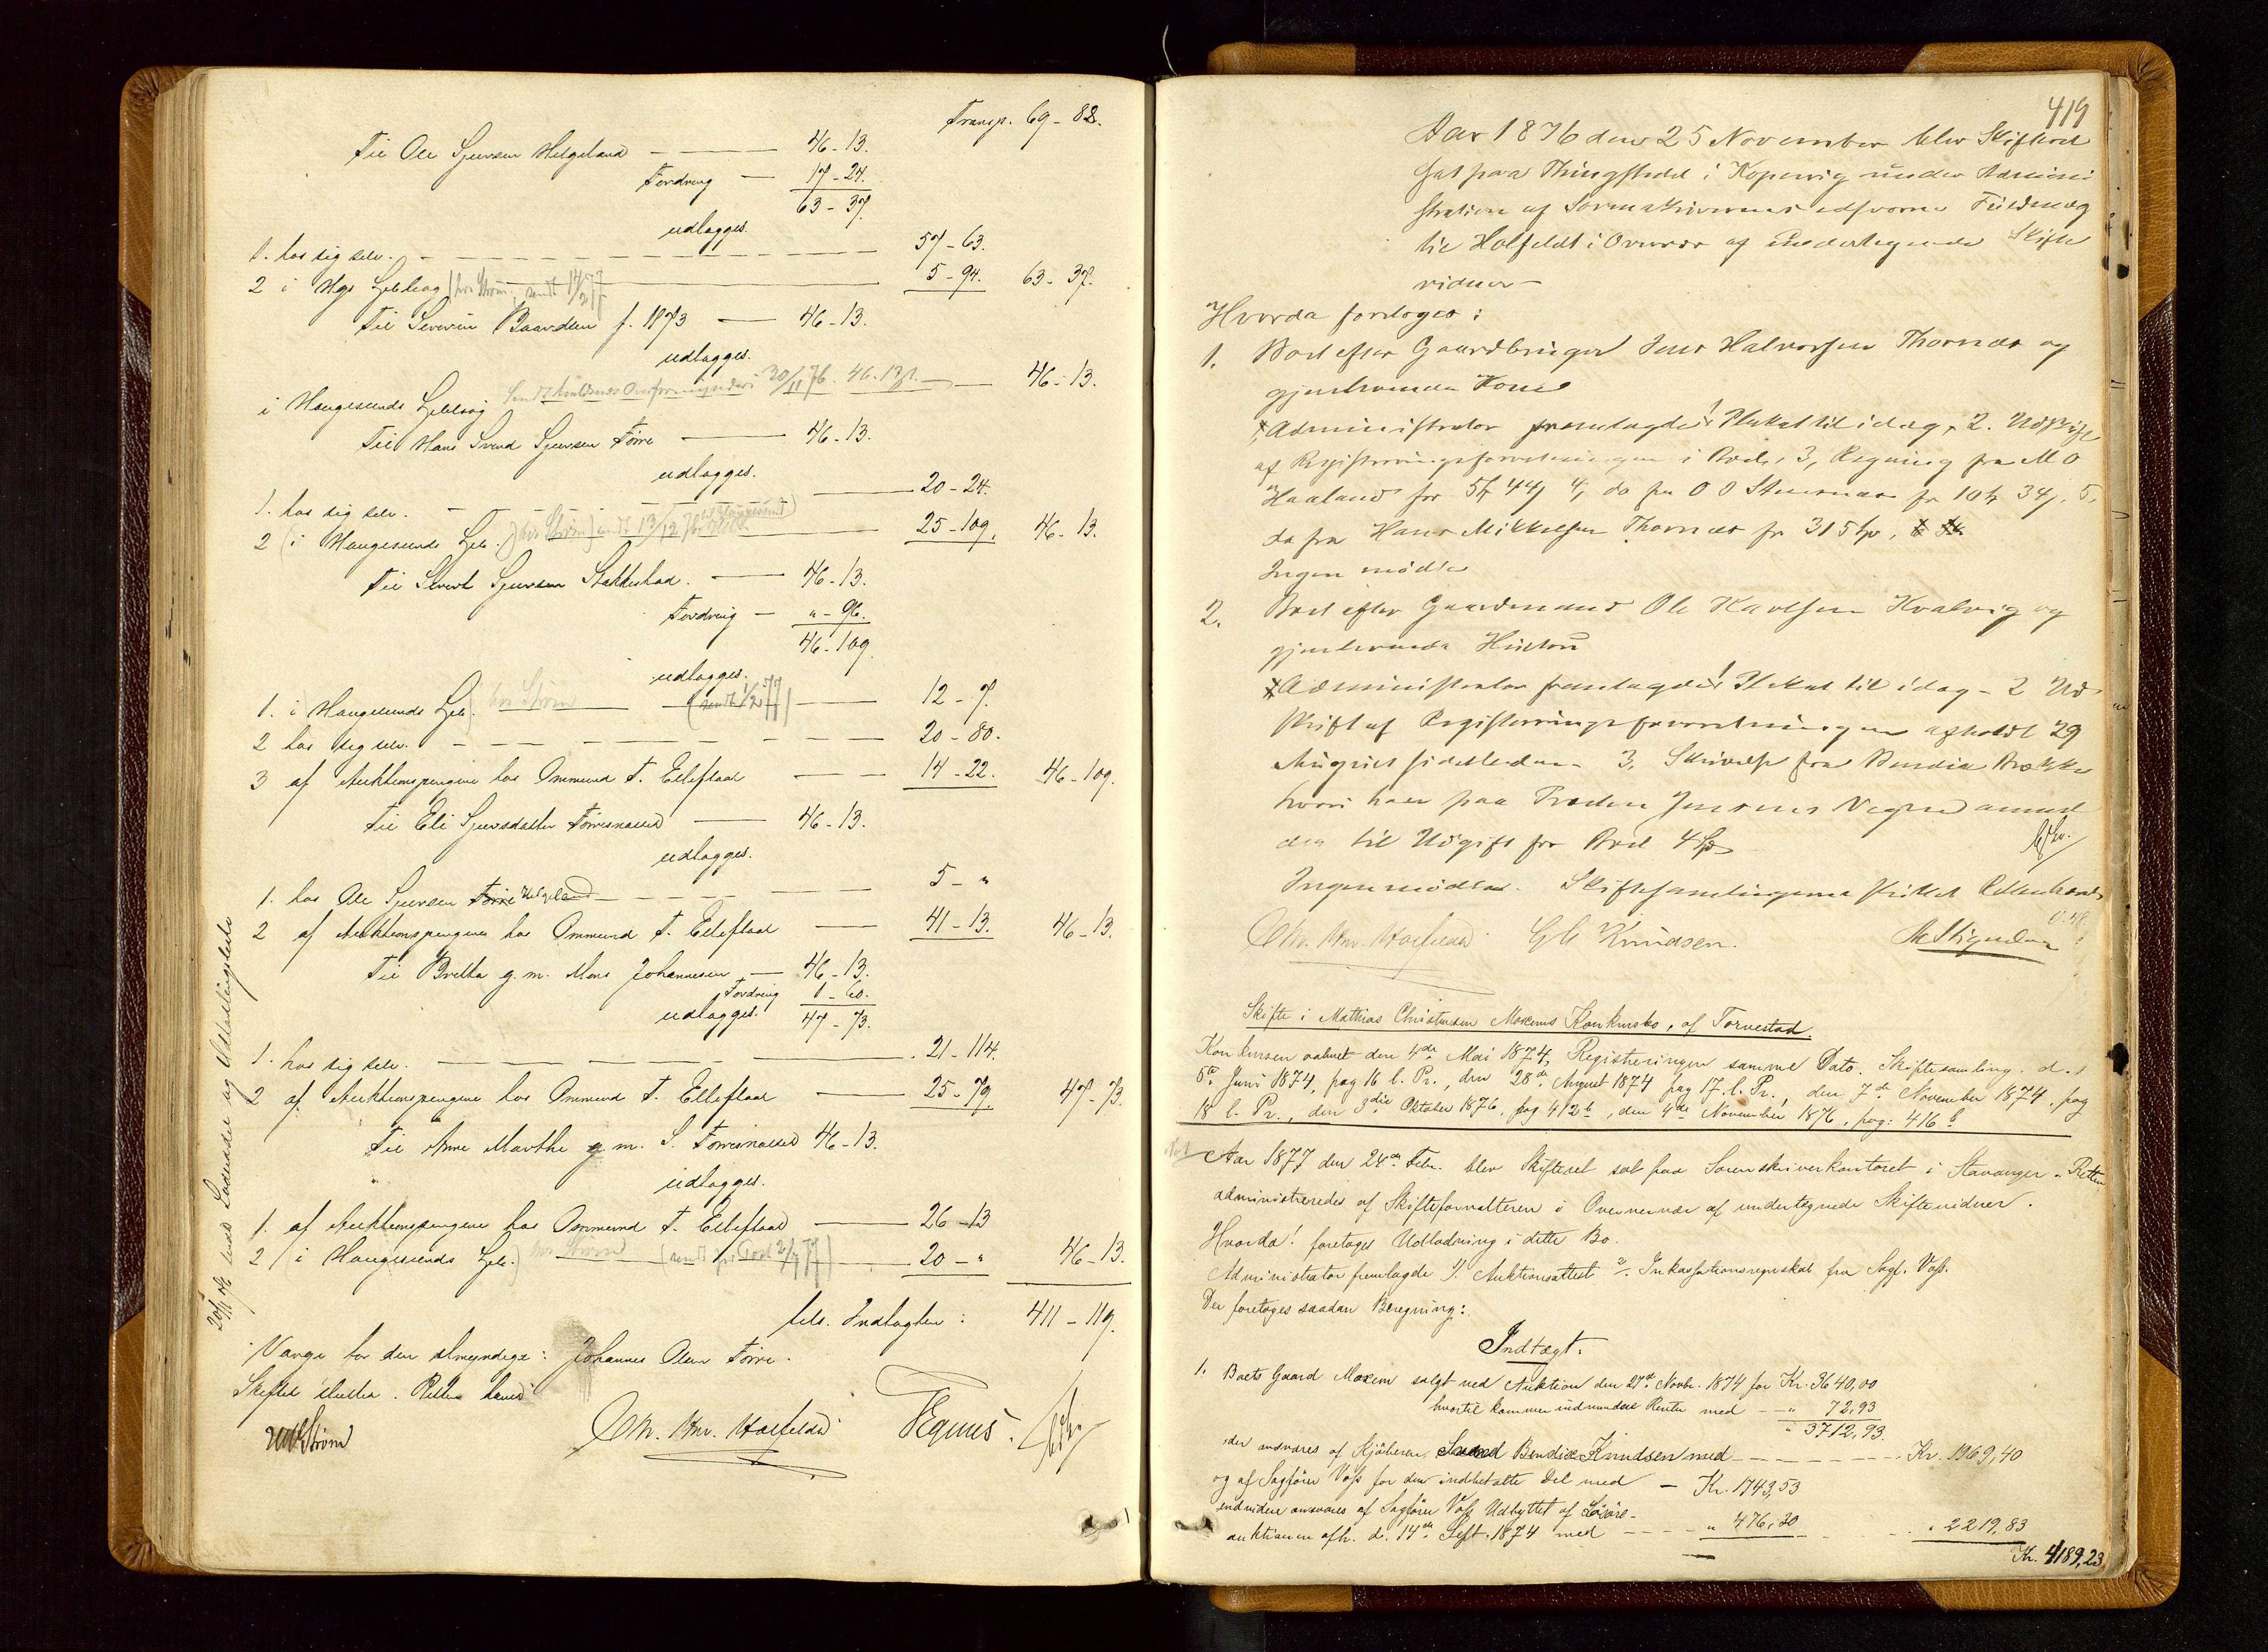 Transp. 69 - 88.
Til Ole Sjursen Helgeland — 46 - 13.
Fordring — 17 - 24.
63 - 37.
udlægges.
1. hos sig selv. — 57 - 63.
2 i Hgs 5 - 94. 63 - 37.
Til Severin Baardsen f. 1873 — 46 - 13.
udlægges.
i Haugesunds 30/11 76. 46 - 13 — 46 - 13.
Til Hans Svend Sjursen Førre — 46 - 13.
udlægges.
1. hos sig selv. — 20 - 24.
2 (i Haugesunds (hos Strøm) sendt 13/12 76 25 - 109. 46 - 13.
Til Sivert Sjursen Stakkestad. — 46 - 13.
Fordring — " - 96.
46 - 109.
udlægges.
1. i Haugesunds hos Strøm (sendt 1/2 77) — 12 - 7.
2 hos sig selv. — 20 - 80.
3 af Auktionspengene hos Ommund T. Elleflaad — 14 - 22. 46 - 109.
Til Eli Sjursdatter Førresnæsed — 46 - 13.
udlægges.
1. hos Ole Sjursen Førre Helgeland — 5 - "
2 af Auktionspengene hos Ommund T. Elleflaad — 41 - 13. 46 - 13.
Til Britha g. m. Mons Johannesen — 46 - 13.
Fordring 1 - 60.
udlægges. 47 - 73.
1. hos sig selv. — 21 - 114.
2 af Auktionspengene hos Ommund T. Elleflaad — 25 - 79. 47 - 73.
Til Anne Marthe g. m. S. Førresnæsed 46 - 13.
udlægges.
1. af Auktionspengene hos Ommund T. Elleflaad — 26 - 13
2 (i Haugesunds hos Strøm 20 - " 46 - 13.
Indtægten: 411 - 119.
Værge for den umyndige: Johannes Olsen Førre.
Skiftet sluttet. Retten hævet
Strøm Chr. Hmr. Holfeldt
419
Aar 1876 den 25 November blev Skifteret
sat paa Thingstedet i Kopervig under Admini
stration af Sorenskriverens edsvorne Fuldmæg
tig Holfeldt i Overvær af undertegnede Skifte
vidner —
Hvorda foretoges:
1. Boet efter Gaardbruger Jens Halvorsen Thornes og
gjenlevende Kone
Administrator fremlagde 1 Plakat til idag, 2. Udskrift
af Registreringsforretningen i Boet, 3, Regning fra M O
Haaland for 5 44 4, do fra O O for 10 34, 5,
do fra Hans Mikkelsen Thornes for 315
Ingen mødte
2. Boet efter Gaardmand Ole Karlsen Kvalvig og
gjenlevende Hustru
Administrator fremlagde 1 Plakat til idag - 2 Ud
skrift af Registreringsforretningen afholdt 29
August sidstleden 3, Skrivelse fra
hvori han paa Vegne anmel
der til Udgift for Boet 4
Ingen mødte. Skiftesamlingerne sluttet Retten hævet
Chr. Hmr. Holfeldt Knudsen.
Skifte i Mathias Christensen Moxenes Konkursbo, af Torvestad.
Konkursen aabnet den 4de Mai 1874, Registreringen samme Dato. Skiftesamling. d.
5te Juni 1874, pag 16 l. Pr., den 28de August 1874 pag 17. l. Pr., den 7de November 1874, pag
18 l. Pr., den 3die Oktober 1876, pag 412 b, den 4de November 1876, pag: 416 b
Aar 1877 den 24de Febr. blev Skifteret sat paa Sorenskriverkontoret i Stavanger. Retten
administreredes af Skifteforvalteren i Overværvær af undertegnede Skiftevidner.
Hvorda! foretoges Udlodning i dette Bo.
Administrator fremlagde 1. Auktionsattest 2. Inkassationsregnskab fra Sagf. Voss.
Der foretoges saadan Beregning:
Indtægt.
1. Boets Gaard Moxem solgt ved Auktion den 27de Novbr. 1874 for Kr. 3640,00
hvortil kommer indvundne Renter med — " 72,93
" 3712,93
der ansvares af Kjøberen Bendix Knudsen med — Kr. 1969,40
og af Sagfører Voss for den indbetalte Del med — Kr. 1743,53
endvidere ansvares af Sagfører Voss Udbyttet af Løsøre-
auktionen afh. d. 14de Sept. 1874 med — " 476,30 " 2219,83
Kr. 4189,23